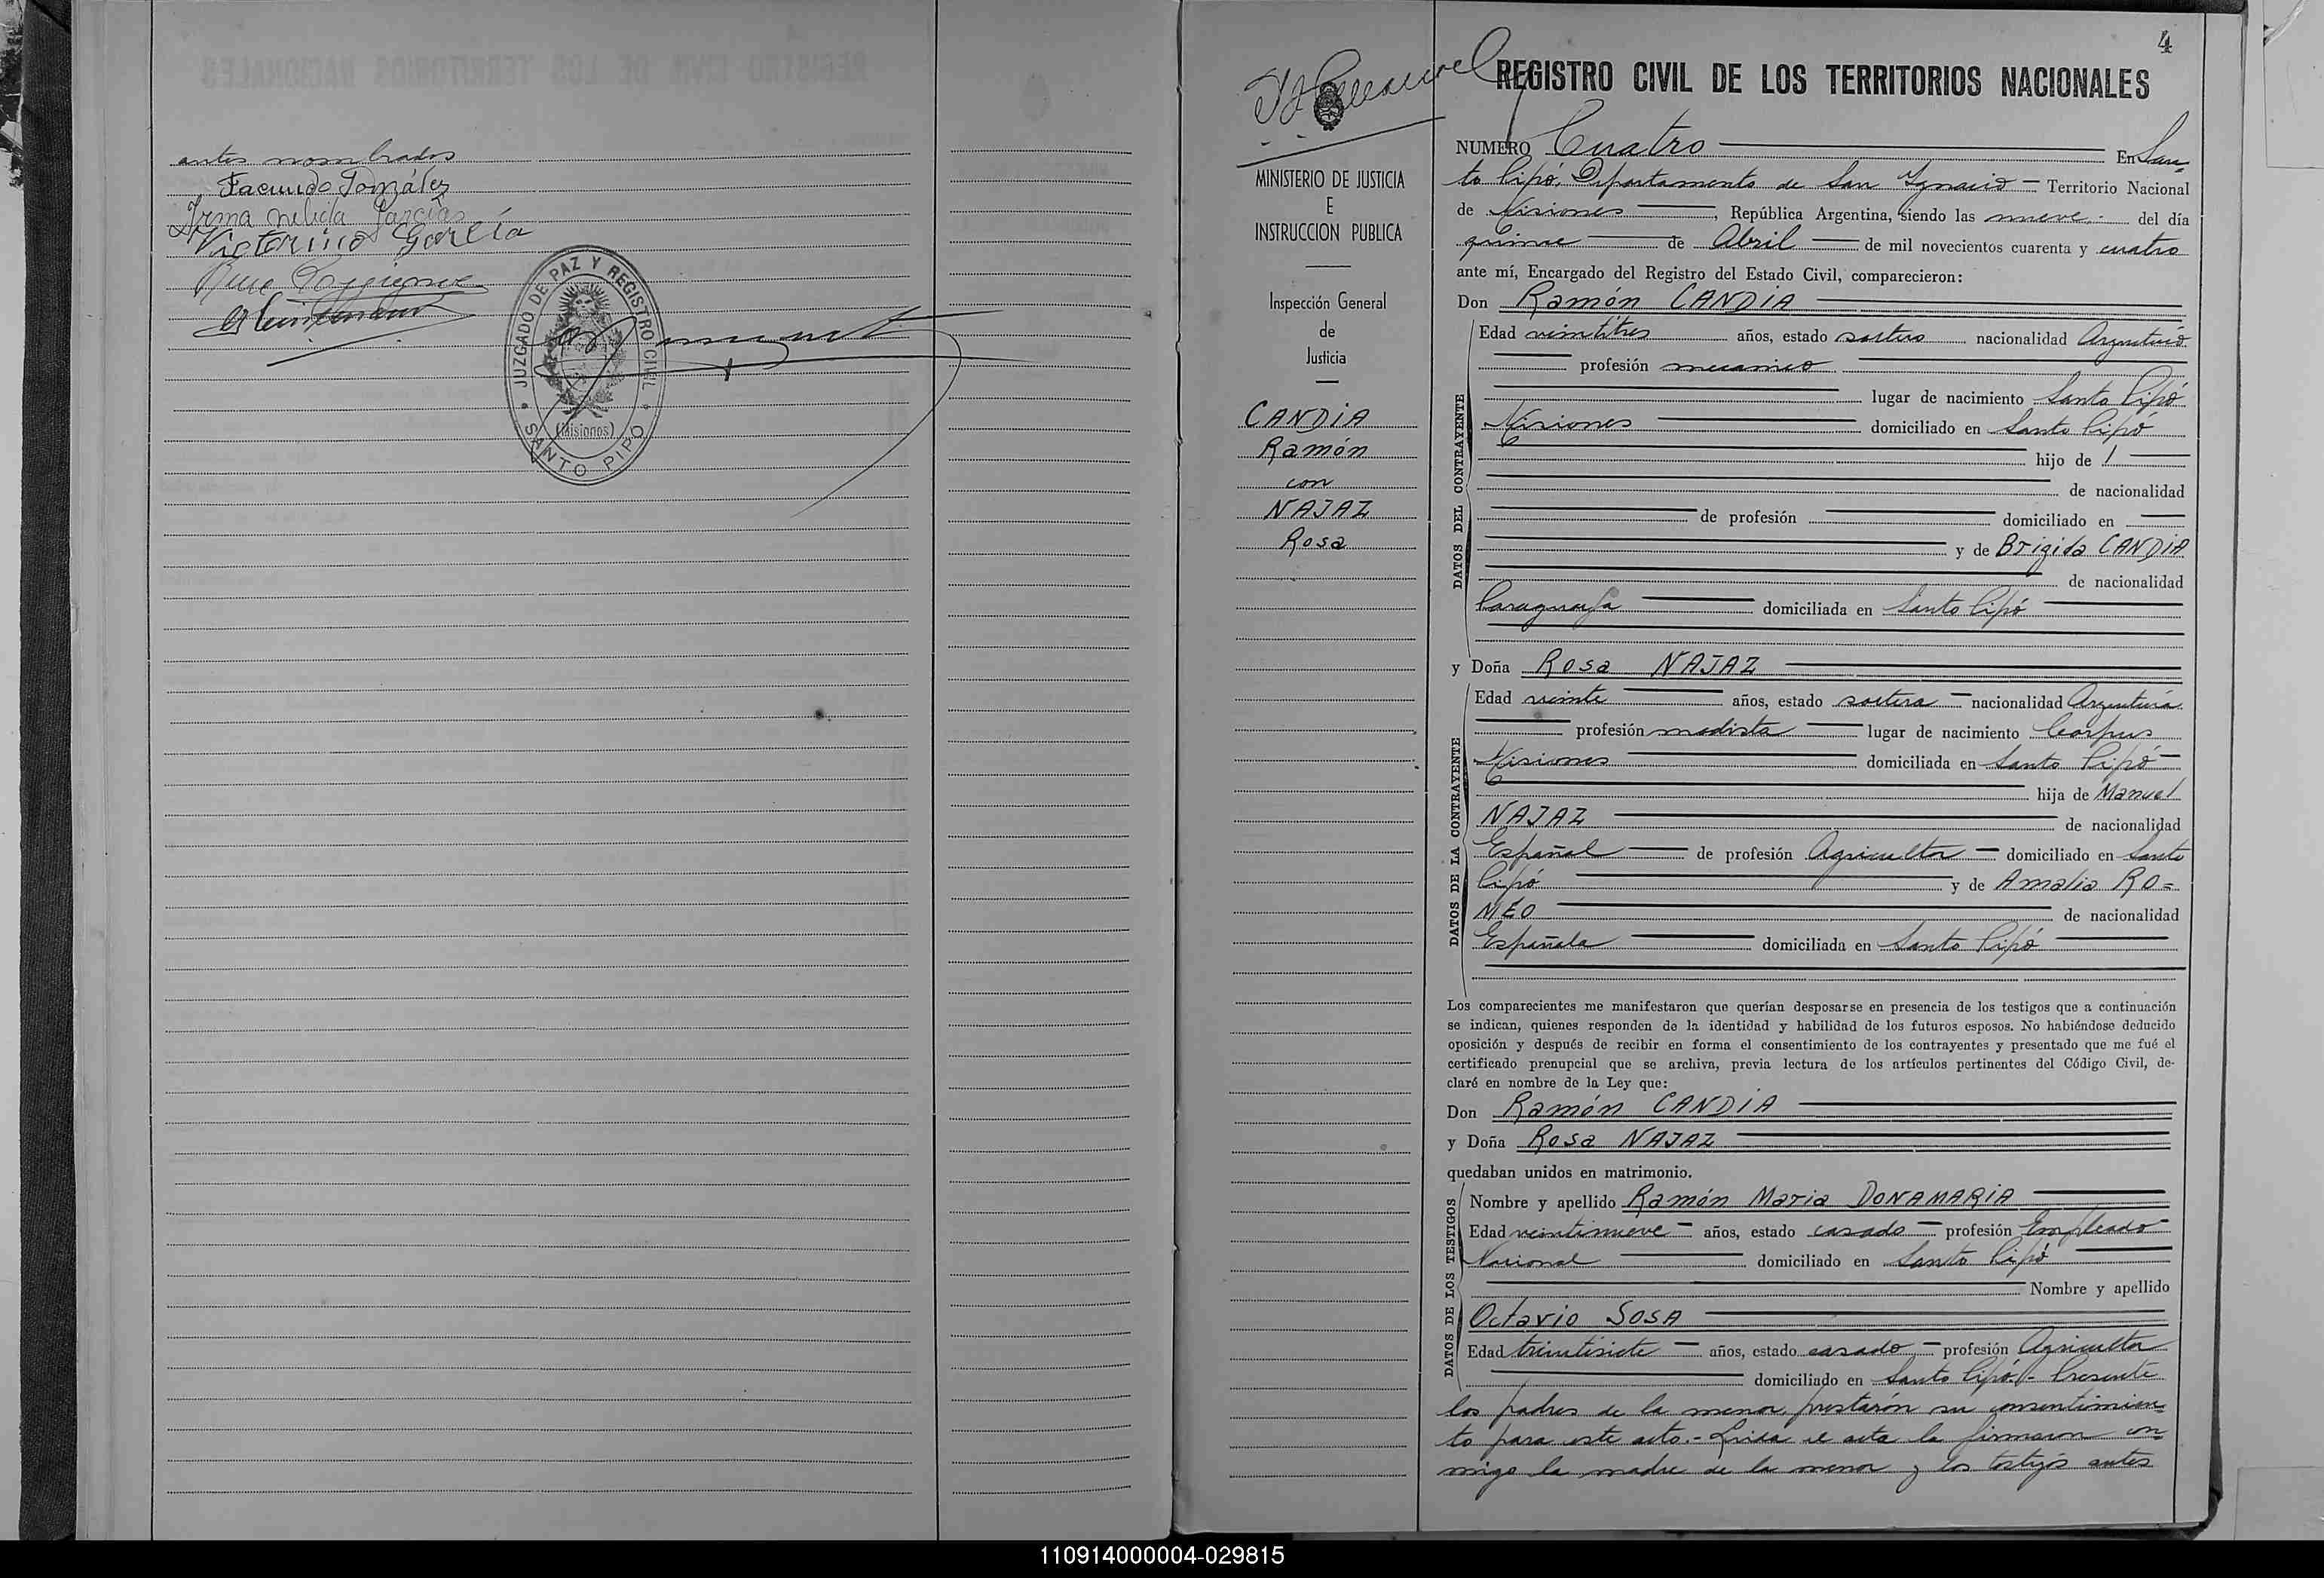 antes nombrados
Facundo González
Irma Nelida Garcías
Victorino García
JUZGADO DE PAZ Y REGISTRO CIVIL
(Misiones)
SANTO PIPO
4
REGISTRO CIVIL DE LOS TERRITORIOS NACIONALES
MINISTERIO DE JUSTICIA
E
INSTRUCCION PUBLICA
Inspección General
de
Justicia
CANDIA
Ramón
con
NAJAZ
Rosa
NUMERO Cuatro En San=
to Pipó, Departamento de San Ignacio Territorio Nacional
de Misiones, República Argentina, siendo las nueve del día
quince de Abril de mil novecientos cuarenta y cuatro
ante mí, Encargado del Registro del Estado Civil, comparecieron:
Don Ramón CANDIA
Edad veintitres años, estado soltero nacionalidad Argentino
profesión mecanico
lugar de nacimiento Santo Pipó
Misiones domiciliado en Santo Pipó
hijo de
de nacionalidad
de profesión domiciliado en
y de Brigida CANDIA
de nacionalidad
Paraguaya domiciliada en Santo Pipó
DATOS DEL CONTRAYENTE
y Doña Rosa NAJAZ
Edad veinte años, estado soltera nacionalidad Argentina
profesión modista lugar de nacimiento Corpus
Misiones domiciliada en Santo Pipó
hija de Manuel
NAJAZ de nacionalidad
Español de profesión Agricultor domiciliado en Santo
Pipó y de Amalia RO=
MÉO de nacionalidad
Española domiciliada en Santo Pipó
DATOS DE LA CONTRAYENTE
Los comparecientes me manifestaron que querían desposarse en presencia de los testigos que a continuación
se indican, quienes responden de la identidad y habilidad de los futuros esposos. No habiéndose deducido
oposición y después de recibir en forma el consentimiento de los contrayentes y presentado que me fué el
certificado prenupcial que se archiva, previa lectura de los artículos pertinentes del Código Civil, de-
claré en nombre de la Ley que:
Don Ramón CANDIA
y Doña Rosa NAJAZ
quedaban unidos en matrimonio.
Nombre y apellido Ramón Maria DONAMARIA
Edad veintinueve años, estado casado profesión Empleado
Nacional domiciliado en Santo Pipó
Nombre y apellido
Octavio SOSA
Edad treintisiete años, estado casado profesión Agricultor
domiciliado en Santo Pipó.- Presente
DATOS DE LOS TESTIGOS
los padres de la menor, prestarón su consentimien=
to para este acto.- Leída el acta la firmaron con=
migo la madre de la menor y los testigos antes
110914000004-029815